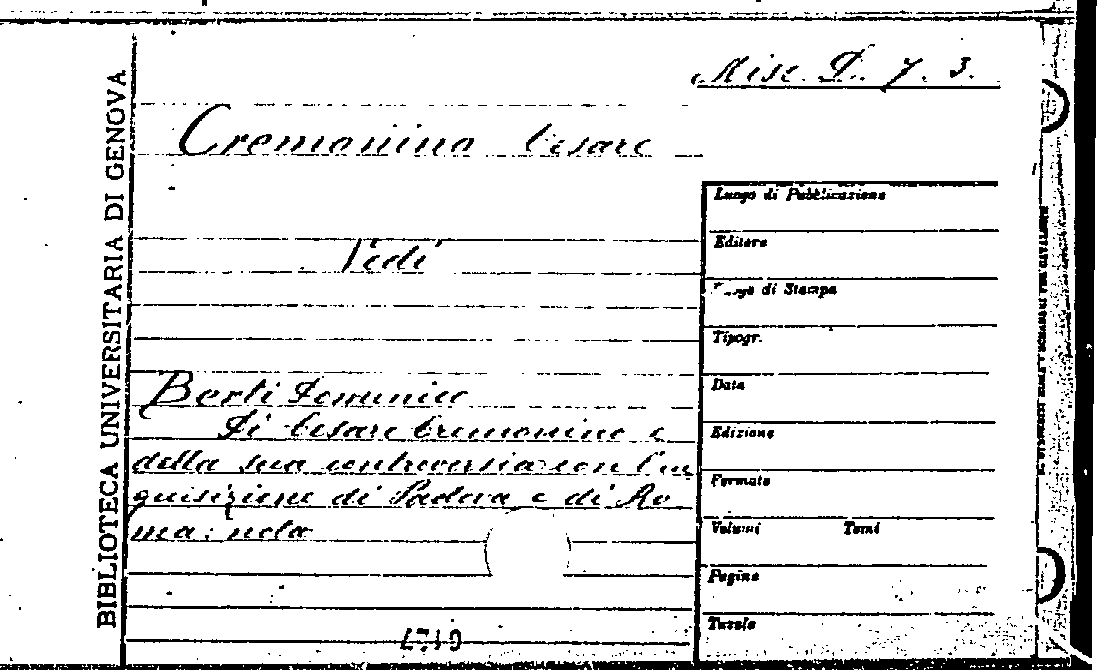 Misc. D. 7. 3.
BIBLIOTECA UNIVERSITARIA DI GENOVA
Cremonino Cesare
Vedi
Berti Domenico
Di Cesare Cremonino e
della sua controversia con l'in
quisizione di Padova e di Ro
ma: nota
Luogo di Pubblicazione
Editore
Luogo di Stampa
Tipogr.
Data
Edizione
Formato
Volumi Tomi
Pagine
Tavole